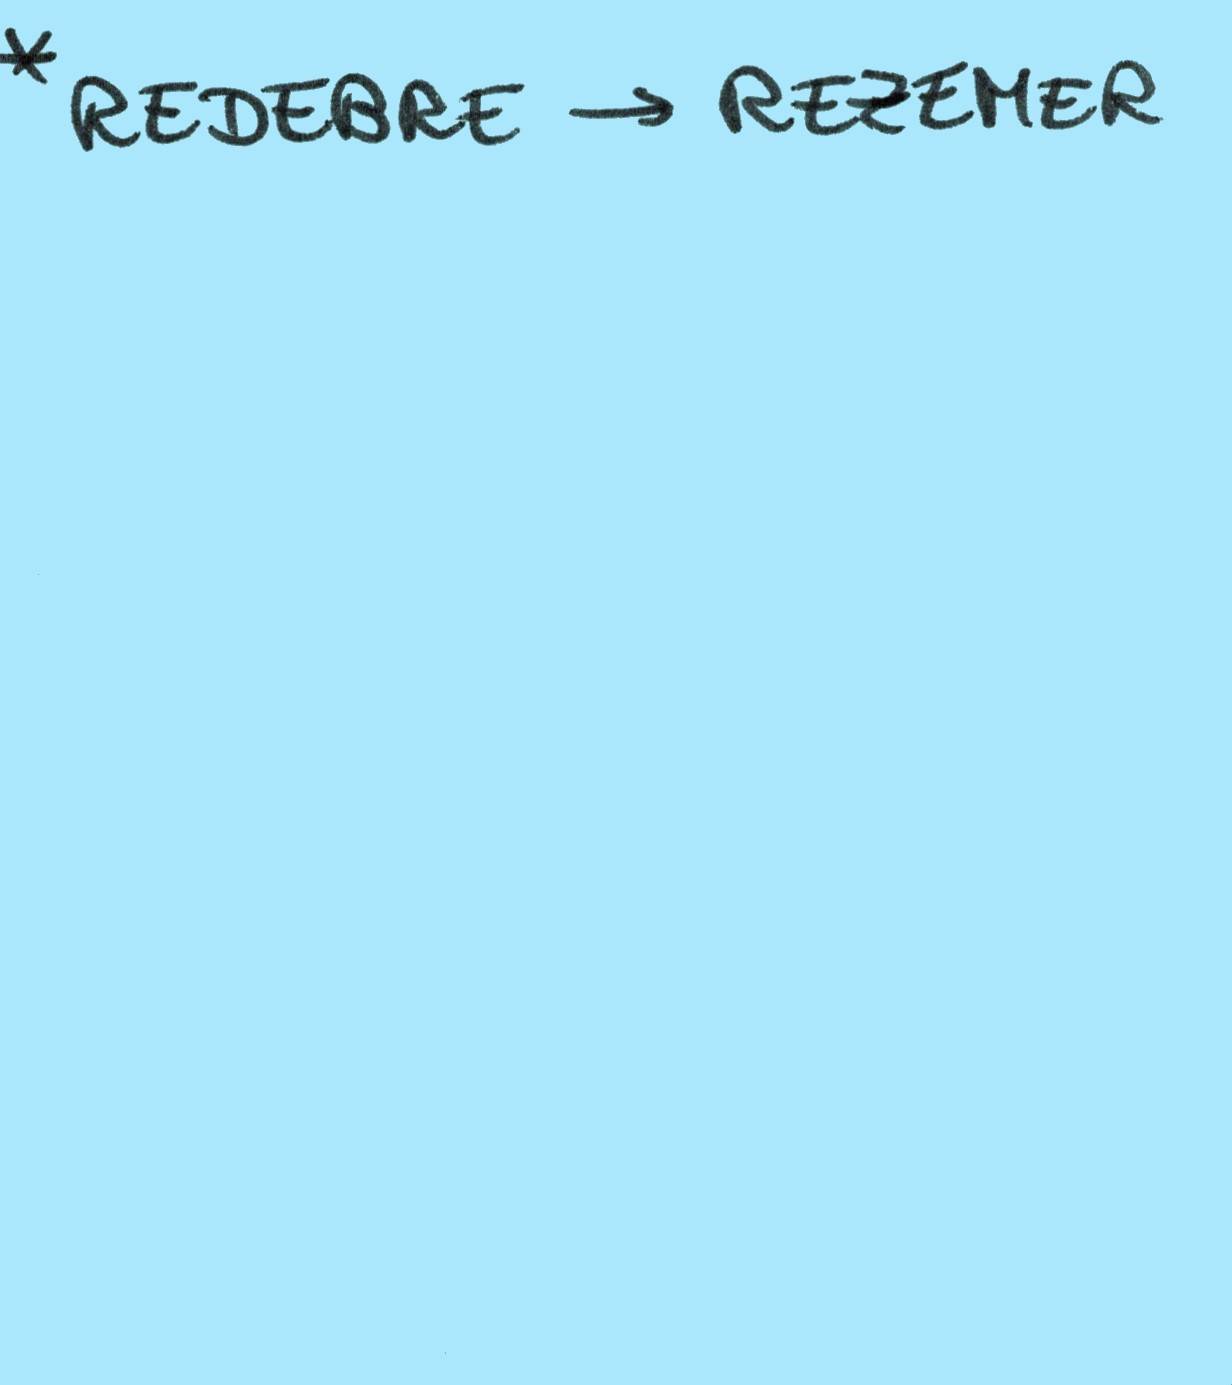 * REDEBRE → REZEMER